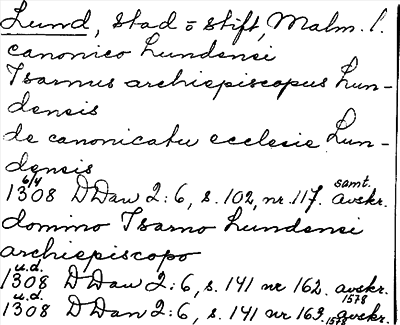 Lund, stad o stift, Malm. l.
canonico Lundensi
Isarnus archiepiscopus Lun-
densis
de canonicatu ecclesie Lun-
densis
6/4 samt.
1308 DDan 2:6, s. 102, nr 117. avskr.
domino Isarno Lundensi
archiepiscopo
u.d.
1308 DDan 2:6, s. 141 nr 162. avskr.
u.d. 1578
1308 DDan 2:6, s. 141 nr 163. avskr.
1578